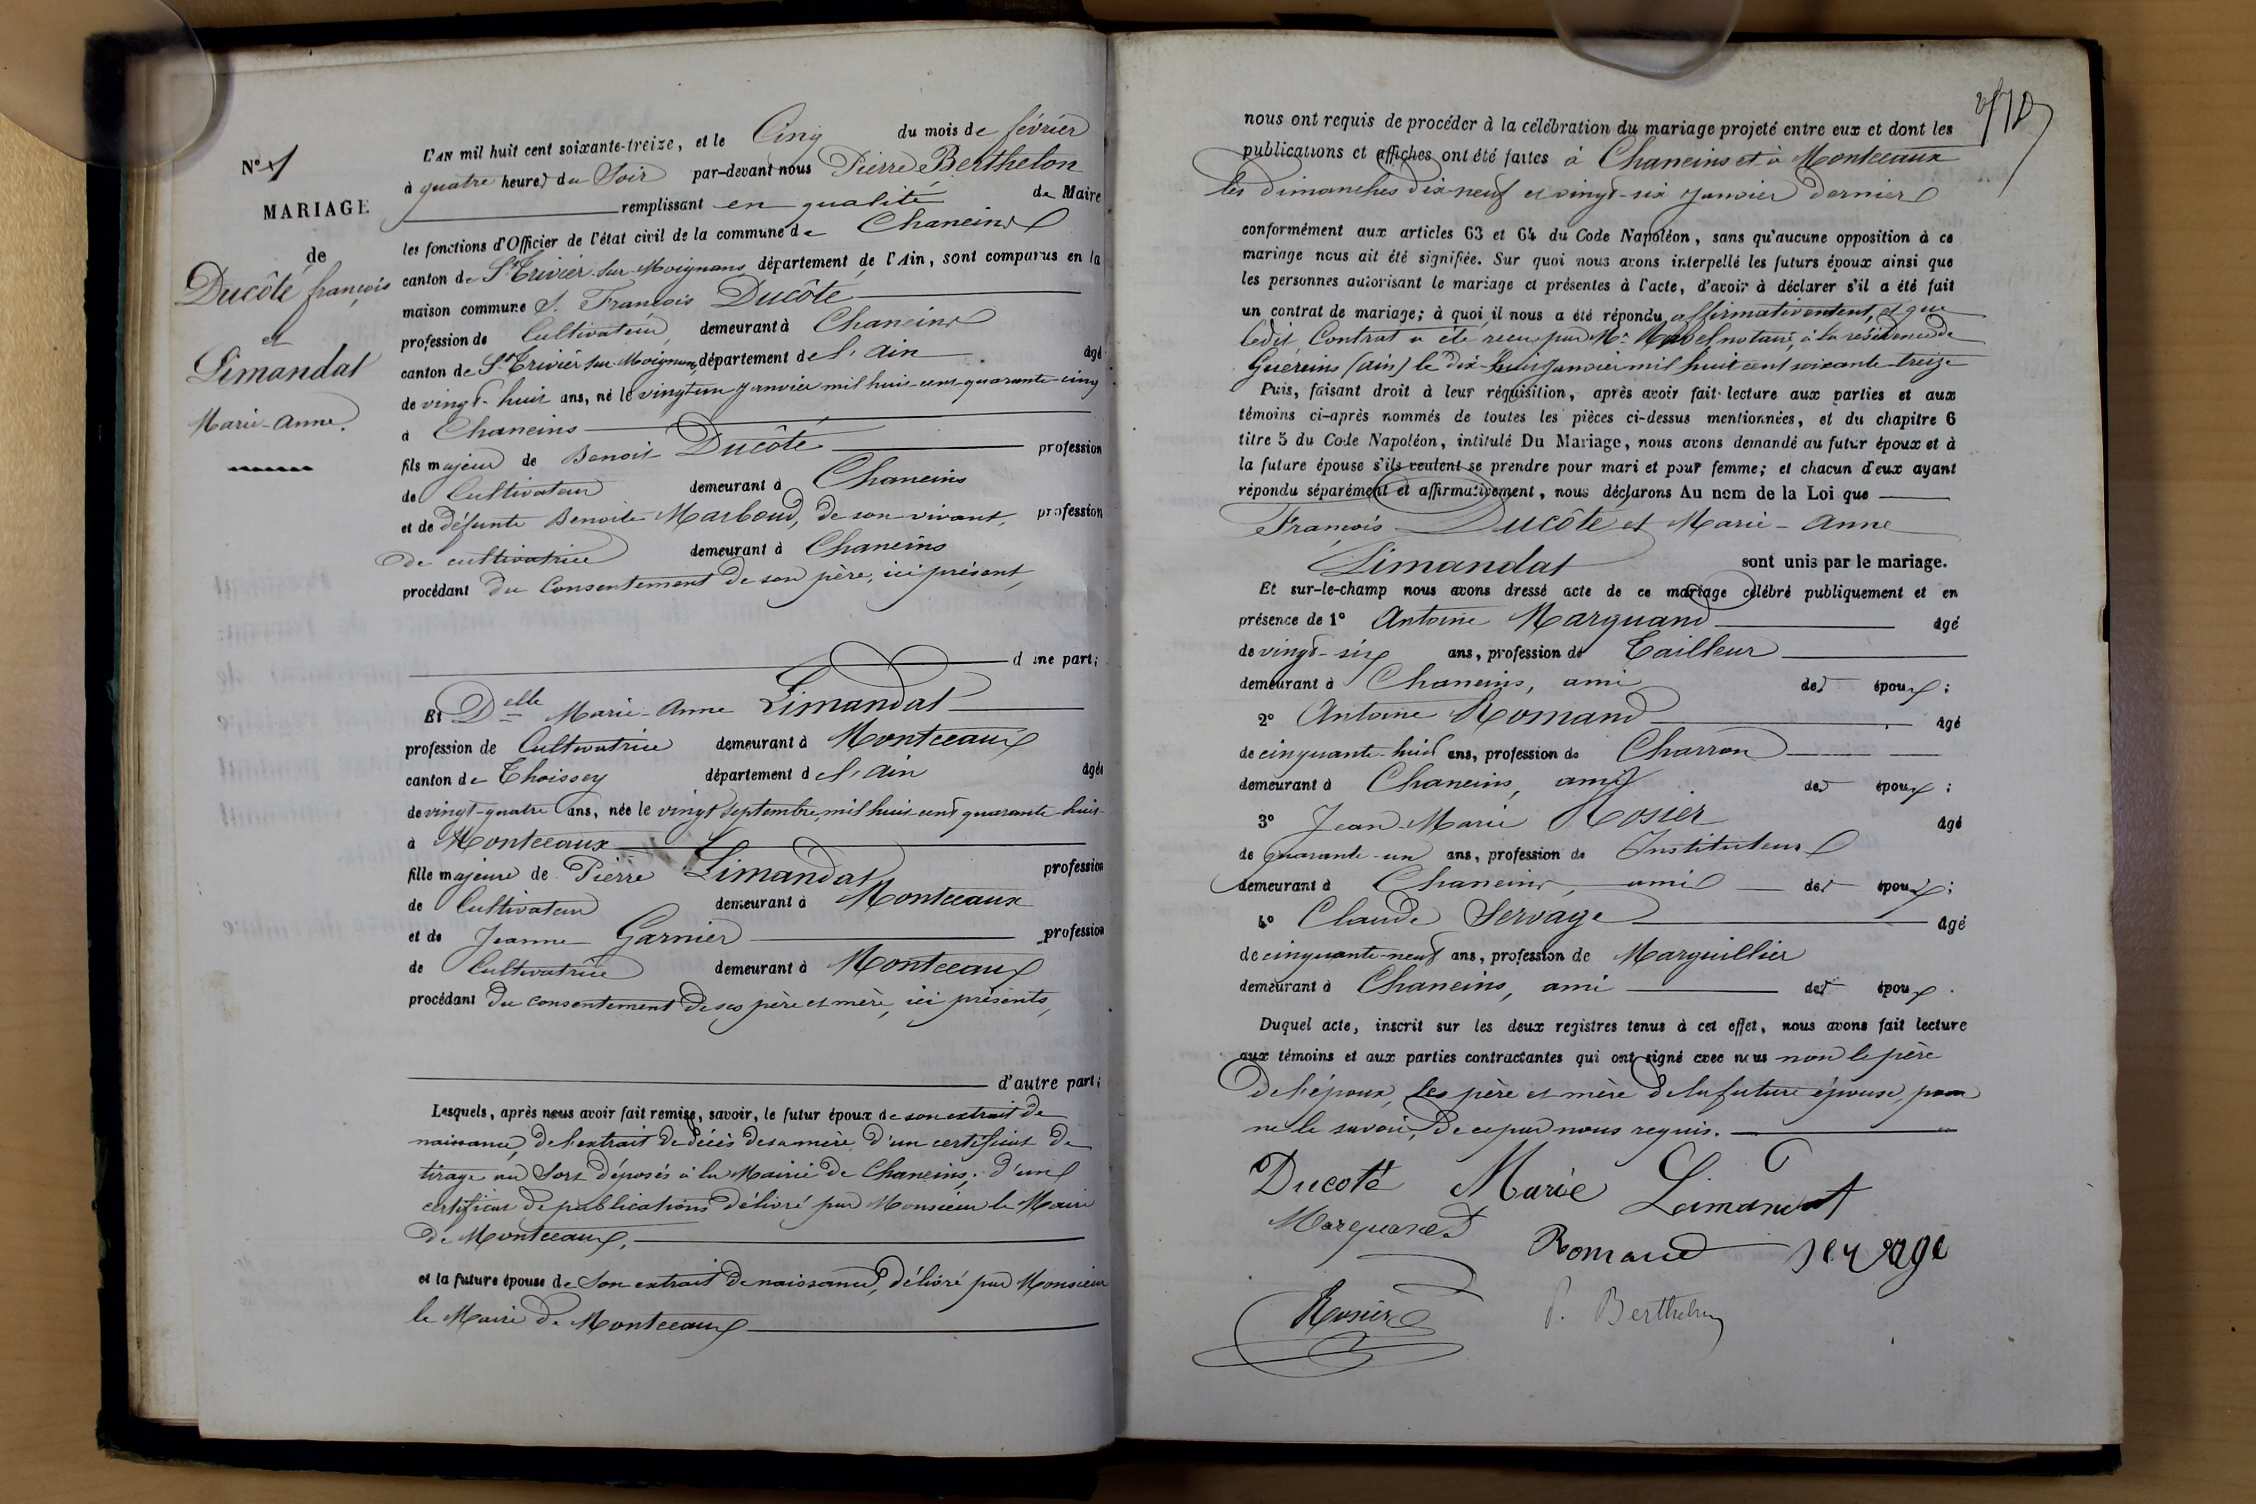 N° 1
MARIAGE
de
Ducôté françois
et
Limandat
Marie-Anne.
L'AN mil huit cent soixante-treize, et le Cinq du mois de février
à quatre heures du Soir par-devant nous Pierre Berthelon
remplissant en qualité de Maire
les fonctions d'Officier de l'état civil de la commune de Chaneins
canton de St Trivier-sur-Moignans département de l'Ain, sont comparus en la
maison commune S. François Ducôté
profession de Cultivateur demeurant à Chaneins
canton de St Trivier sur Moignans, département de l'Ain âgé
de vingt-huit ans, né le vingt un janvier mil huit-cent-quarante-cinq
à Chaneins
fils majeur de Benoit Ducôté profession
de Cultivateur demeurant à Chaneins
et de défunte Benoite Marboud, de son vivant, profession
de cultivatrice demeurant à Chaneins
procédant du consentement de son père, ici présent,
d'une part;
Et Delle Marie-Anne Limandat
profession de Cultivatrice demeurant à Montceaux
canton de Thoissey département de l'Ain âgée
de vingt-quatre ans, née le vingt septembre mil huit-cent quarante-huit
à Montceaux
fille majeure de Pierre Limandat profession
de Cultivateur demeurant à Montceaux
et de Jeanne Garnier profession
de Cultivatrice demeurant à Montceaux
procédant du consentement de ses père et mère, ici présents,
d'autre part;
Lesquels, après nous avoir fait remise, savoir, le futur époux de son extrait de
naissance, de l'extrait de décès de sa mère d'un certificat de
tirage au Sort déposés à la Mairie de Chaneins; d'un
certificat de publications délivré par Monsieur le Maire
de Montceaux,
et la future épouse de Son extrait de naissance, délivré par Monsieur
le Maire de Montceaux
nous ont requis de procéder à la célébration du mariage projeté entre eux et dont les
publications et affiches ont été faites à Chaneins et à Montceaux
les dimanches dix-neuf et vingt-six janvier dernier
conformément aux articles 63 et 64 du Code Napoléon, sans qu'aucune opposition à ce
mariage nous ait été signifiée. Sur quoi nous avons interpellé les futurs époux ainsi que
les personnes autorisant le mariage et présentes à l'acte, d'avoir à déclarer s'il a été fait
un contrat de mariage; à quoi il nous a été répondu affirmativement, et que
ledit Contrat a été reçu par Me notaire, à la résidence de
Guéreins (ain) le dix-huit janvier mil huit cent soixante-treize
Puis, faisant droit à leur réquisition, après avoir fait lecture aux parties et aux
témoins ci-après nommés de toutes les pièces ci-dessus mentionnées, et du chapitre 6
titre 5 du Code Napoléon, intitulé Du Mariage, nous avons demandé au futur époux et à
la future épouse s'ils veulent se prendre pour mari et pour femme; et chacun d'eux ayant
répondu séparément et affirmativement, nous déclarons Au nom de la Loi que
François Ducôté et Marie-Anne
Limandat sont unis par le mariage.
Et sur-le-champ nous avons dressé acte de ce mariage célébré publiquement et en
présence de 1° Antoine Marquand âgé
de vingt-six ans, profession de Tailleur
demeurant à Chaneins, ami des époux;
2° Antoine Romand âgé
de cinquante-huit ans, profession de Charron
demeurant à Chaneins, ami des époux;
3° Jean-Marie Rosier âgé
de quarante-un ans, profession de Instituteur
demeurant à Chaneins, ami des époux;
4° Claude Servage âgé
de cinquante-neuf ans, profession de Marguillier
demeurant à Chaneins, ami des époux.
Duquel acte, inscrit sur les deux registres tenus à cet effet, nous avons fait lecture
aux témoins et aux parties contractantes qui ont signé avec nous non le père
de l'époux, les père et mère de la future épouse, pour
ne le savoir, de ce par nous requis.
Ducoté Marie Limandat
Marquand Romand servage
Rosier P. Berthelon